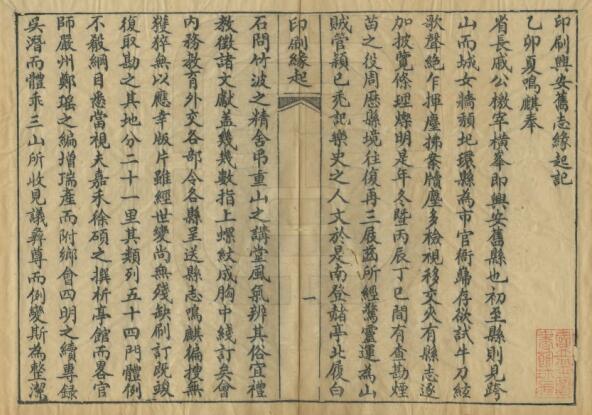 印刷興安舊志緣起記
乙卯夏鳴麒奉
省長戚公檄宰橫峯即興安舊縣也初至縣則見跨
山而城女牆頹圯環縣為市官衙巋存欲試牛刀絃
歌聲絕乍揮麈拂案牘塵多檢視移交夾有縣志遂
加披覽條理燦明是年冬暨丙辰丁巳間有查勘煙
苗之役周歷縣境往復再三屐齒所經驚靈運為山
賊管穎已禿記樂史之人文於是南登赭亭北履白
印刷緣起
一
石問竹波之精舍吊重山之講堂風氣辨其俗宜禮
教徵諸文獻蓋幾幾數指上螺紋成胸中綫訂矣會
內務教育外交各部令各縣呈送縣志鳴麒徧搜無
獲猝無以應幸版片雖經世變尚無殘缺刷訂既竣
復取勘之其地分二十一里其類列五十四門體例
不殽綱目悉當視夫嘉禾徐碩之撰析亭館而畧官
師嚴州鄭瑤之編增瑞產而附鄉會四明之續專錄
吳潛而體乖三山所收見議彝尊而例變斯為整潔